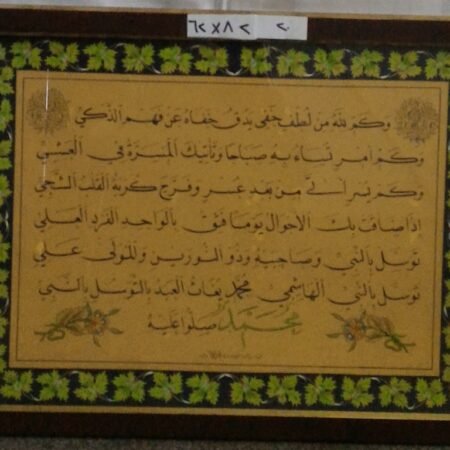 ٦٢×٨٧ ٢٠
وكم لله من لطف خفي يدق خفاه عن فهم الذكي
وكم أمر تساء به صباحا وتأتيك المسرة في العشي
وكم يسر أتى من بعد عسر وفرج كربة القلب الشجي
إذا ضاقت بك الأحوال يوما فثق بالواحد الفرد العلي
توسل بالنبي وصاحبيه وذو النورين والمولى علي
توسل بالنبي الهاشمي محمد يغاث العبد بالتوسل بالنبي
محمد صلوا عليه